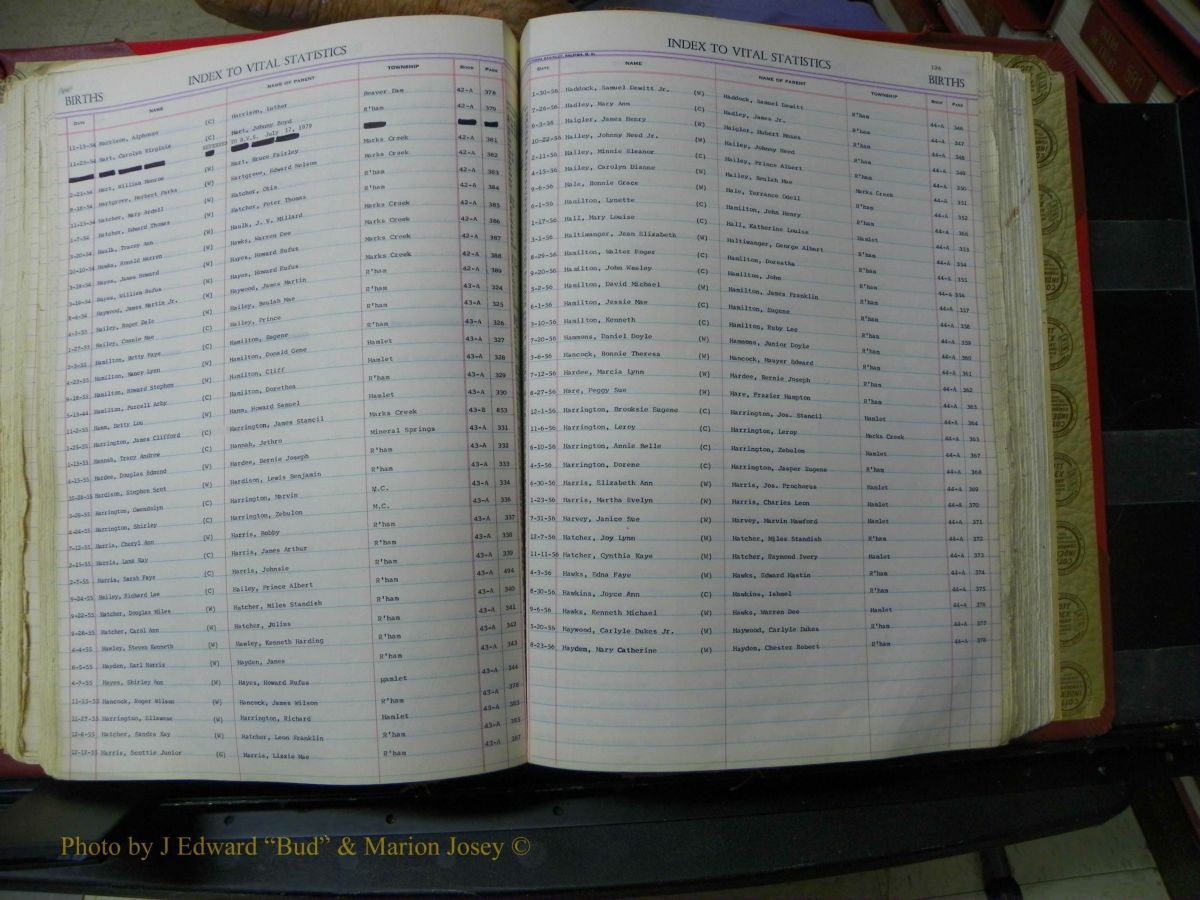 INDEX TO VITAL STATISTICS
BIRTHS
DATE NAME NAME OF PARENT TOWNSHIP BOOK PAGE
11-13-54 Harrison, Alphonso (C) Harrison, Luther Beaver Dam 42-A 378
11-25-54 Hart, Carolyn Virginia (C) Hart, Johnny Boyd R'ham 42-A 379
TO B.V.S. July 17, 1979
2-21-54 Hart, William Monroe (W) Hart, Bruce Fairley Marks Creek 42-A 381
9-18-54 Hartgrove, Herbert Parks (W) Hartgrove, Edward Nelson Marks Creek 42-A 382
11-13-54 Hatcher, Mary Ardell (W) Hatcher, Otis R'ham 42-A 383
1-7-54 Hatcher, Edward Thomas (W) Hatcher, Peter Thomas R'ham 42-A 384
3-20-54 Haulk, Tracey Ann (W) Haulk, J. V. Millard Marks Creek 42-A 385
10-10-54 Hawks, Ronald Warren (W) Hawks, Warren Dee Marks Creek 42-A 386
Hayes, James Howard (W) Hayes, Howard Rufus Marks Creek 42-A 387
Hayes, William Rufus (W) Hayes, Howard Rufus Marks Creek 42-A 388
8-4-54 Haywood, James Martin Jr. (W) Haywood, James Martin R'ham 42-A 389
4-3-55 Hailey, Roger Dale (C) Hailey, Beulah Mae R'ham 43-A 324
1-27-55 Hailey, Connie Mae (C) Hailey, Prince R'ham 43-A 325
Hamilton, Betty Faye (C) Hamilton, Eugene R'ham 43-A 326
4-23-55 Hamilton, Nancy Lynn (W) Hamilton, Donald Gene Hamlet 43-A 327
9-18-55 Hamilton, Howard Stephen (W) Hamilton, Cliff Hamlet 43-A 328
Hamilton, Purcell Arby (C) Hamilton, Dorethea R'ham 43-A 329
11-2-55 Hamm, Betty Lou (W) Hamm, Howard Samuel Hamlet 43-A 330
Harrington, James Clifford (C) Harrington, James Stancil Marks Creek 43-B 853
1-13-55 Hannah, Tracy Andrew (C) Hannah, Jethro Mineral Springs 43-A 331
4-15-55 Hardee, Douglas Edmund (W) Hardee, Bernie Joseph R'ham 43-A 332
Hardison, Stephen Scot (W) Hardison, Lewis Benjamin R'ham 43-A 333
Harrington, Gwendolyn (C) Harrington, Marvin M.C. 43-A 334
Harrington, Shirley (C) Harrington, Zebulon M.C. 43-A 336
7-12-55 Harris, Cheryl Ann (W) Harris, Bobby R'ham 43-A 337
2-15-55 Harris, Lana Kay (C) Harris, James Arthur R'ham 43-A 338
2-7-55 Harris, Sarah Faye (C) Harris, Johnsie R'ham 43-A 339
9-24-55 Hailey, Richard Lee (C) Hailey, Prince Albert R'ham 43-A 494
9-22-55 Hatcher, Douglas Miles (W) Hatcher, Miles Standish R'ham 43-A 340
9-26-55 Hatcher, Carol Ann (W) Hatcher, Julius R'ham 43-A 341
4-4-55 Hawley, Steven Kenneth (W) Hawley, Kenneth Harding R'ham 43-A 342
8-5-55 Hayden, Karl Norris (W) Hayden, James R'ham 43-A 343
4-7-55 Hayes, Shirley Ann (W) Hayes, Howard Rufus Hamlet 43-A 344
11-15-55 Hancock, Roger Wilson (W) Hancock, James Wilson R'ham 43-A 378
11-27-55 Harrington, Ellawese (W) Harrington, Richard Hamlet 43-A 383
12-8-55 Hatcher, Sandra Kay (W) Hatcher, Leon Franklin R'ham 43-A 385
12-12-55 Harris, Scottie Junior (C) Harris, Lizzie Mae R'ham 43-A 387
INDEX TO VITAL STATISTICS
BIRTHS
DATE NAME NAME OF PARENT TOWNSHIP BOOK PAGE
1-30-56 Haddock, Samuel Dewitt Jr. (W) Haddock, Samuel Dewitt R'ham 44-A 346
7-26-56 Hadley, Mary Ann (C) Hadley, James Jr. R'ham 44-A 347
6-3-56 Haigler, James Henry (W) Haigler, Hubert Moses R'ham 44-A 348
10-22-56 Hailey, Johnny Reed Jr. (W) Hailey, Johnny Reed R'ham 44-A 349
2-11-56 Hailey, Minnie Eleanor (C) Hailey, Prince Albert R'ham 44-A 350
4-15-56 Hailey, Carolyn Dianne (W) Hailey, Beulah Mae Marks Creek 44-A 351
9-6-56 Hale, Bonnie Grace (W) Hale, Torrance Odell R'ham 44-A 352
6-1-56 Hamilton, Lynette (C) Hamilton, John Henry R'ham 44-A 366
1-17-56 Hall, Mary Louise (C) Hall, Katherine Louise Hamlet 44-A 353
3-1-56 Haltiwanger, Jean Elizabeth (W) Haltiwanger, George Albert R'ham 44-A 354
8-29-56 Hamilton, Walter Roger (C) Hamilton, Doreatha R'ham 44-A
9-20-56 Hamilton, John Wesley (C) Hamilton, John R'ham 44-A 357
5-2-56 Hamilton, David Michael (W) Hamilton, James Franklin R'ham 44-A 358
6-1-56 Hamilton, Jessie Mae (C) Hamilton, Eugene R'ham 44-A 359
3-10-56 Hamilton, Kenneth (C) Hamilton, Ruby Lee R'ham 44-A 360
7-20-56 Hammons, Daniel Doyle (W) Hammons, Junior Doyle R'ham 44-A 361
3-6-56 Hancock, Bonnie Theresa (W) Hancock, Mauyer Edward R'ham 44-A 362
7-12-56 Hardee, Marcia Lynn (W) Hardee, Bernie Joseph R'ham 44-A 363
8-27-56 Hare, Peggy Sue (W) Hare, Frazier Hampton Hamlet 44-A 364
12-1-56 Harrington, Brooksie Eugene (C) Harrington, Jos. Stancil Marks Creek 44-A 365
11-6-56 Harrington, Leroy (C) Harrington, Leroy Hamlet 44-A 367
6-10-56 Harrington, Annie Belle (C) Harrington, Zebulon R'ham 44-A 368
4-3-56 Harrington, Dorene (C) Harrington, Jasper Eugene Hamlet 44-A 369
6-30-56 Harris, Elizabeth Ann (W) Harris, Jos. Prochorus Hamlet 44-A 370
1-23-56 Harris, Martha Evelyn (W) Harris, Charles Leon Hamlet 44-A 371
7-31-56 Harvey, Janice Sue (W) Harvey, Marvin Hawford R'ham 44-A 372
12-7-56 Hatcher, Joy Lynn (W) Hatcher, Miles Standish Hamlet 44-A 373
11-11-56 Hatcher, Cynthia Kaye (W) Hatcher, Raymond Ivery R'ham 44-A 374
4-3-56 Hawks, Edna Faye (W) Hawks, Edward Hastin R'ham 44-A 375
8-30-56 Hawkins, Joyce Ann (C) Hawkins, Ishmel Hamlet 44-A 376
9-6-56 Hawks, Kenneth Michael (W) Hawks, Warren Dee R'ham 44-A 377
5-20-56 Haywood, Carlyle Dukes Jr. (W) Haywood, Carlyle Dukes R'ham 44-A 378
8-23-56 Hayden, Mary Catherine (W) Hayden, Chester Robert
Photo by J Edward “Bud” & Marion Josey ©